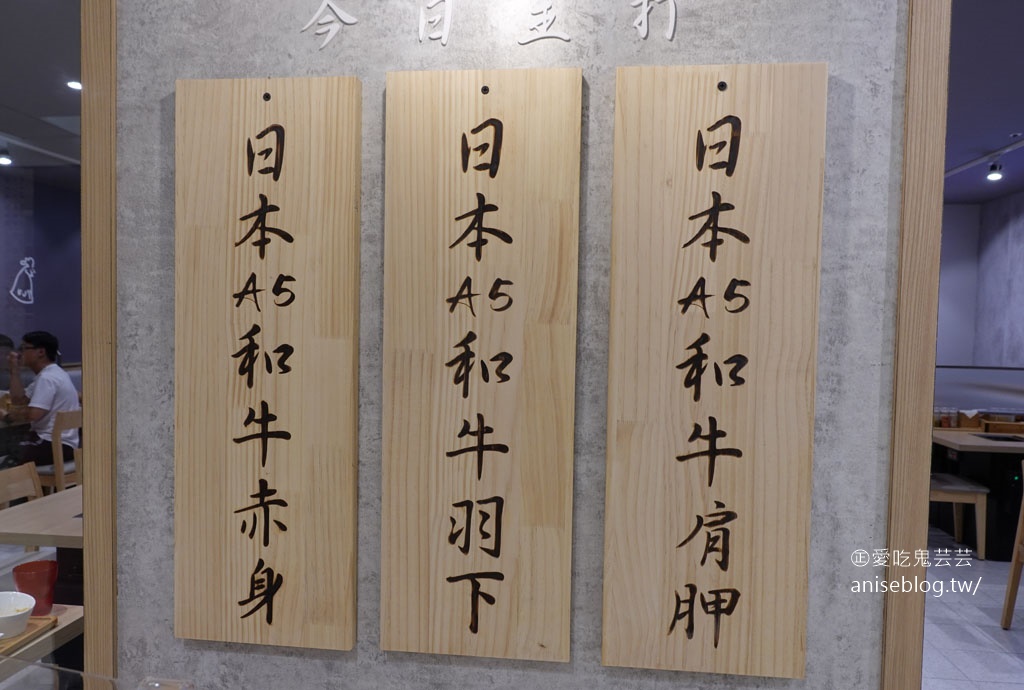 今日主打
日本A5和牛赤身
日本A5和牛羽下
日本A5和牛肩胛
㊣愛吃鬼芸芸
aniseblog.tw/